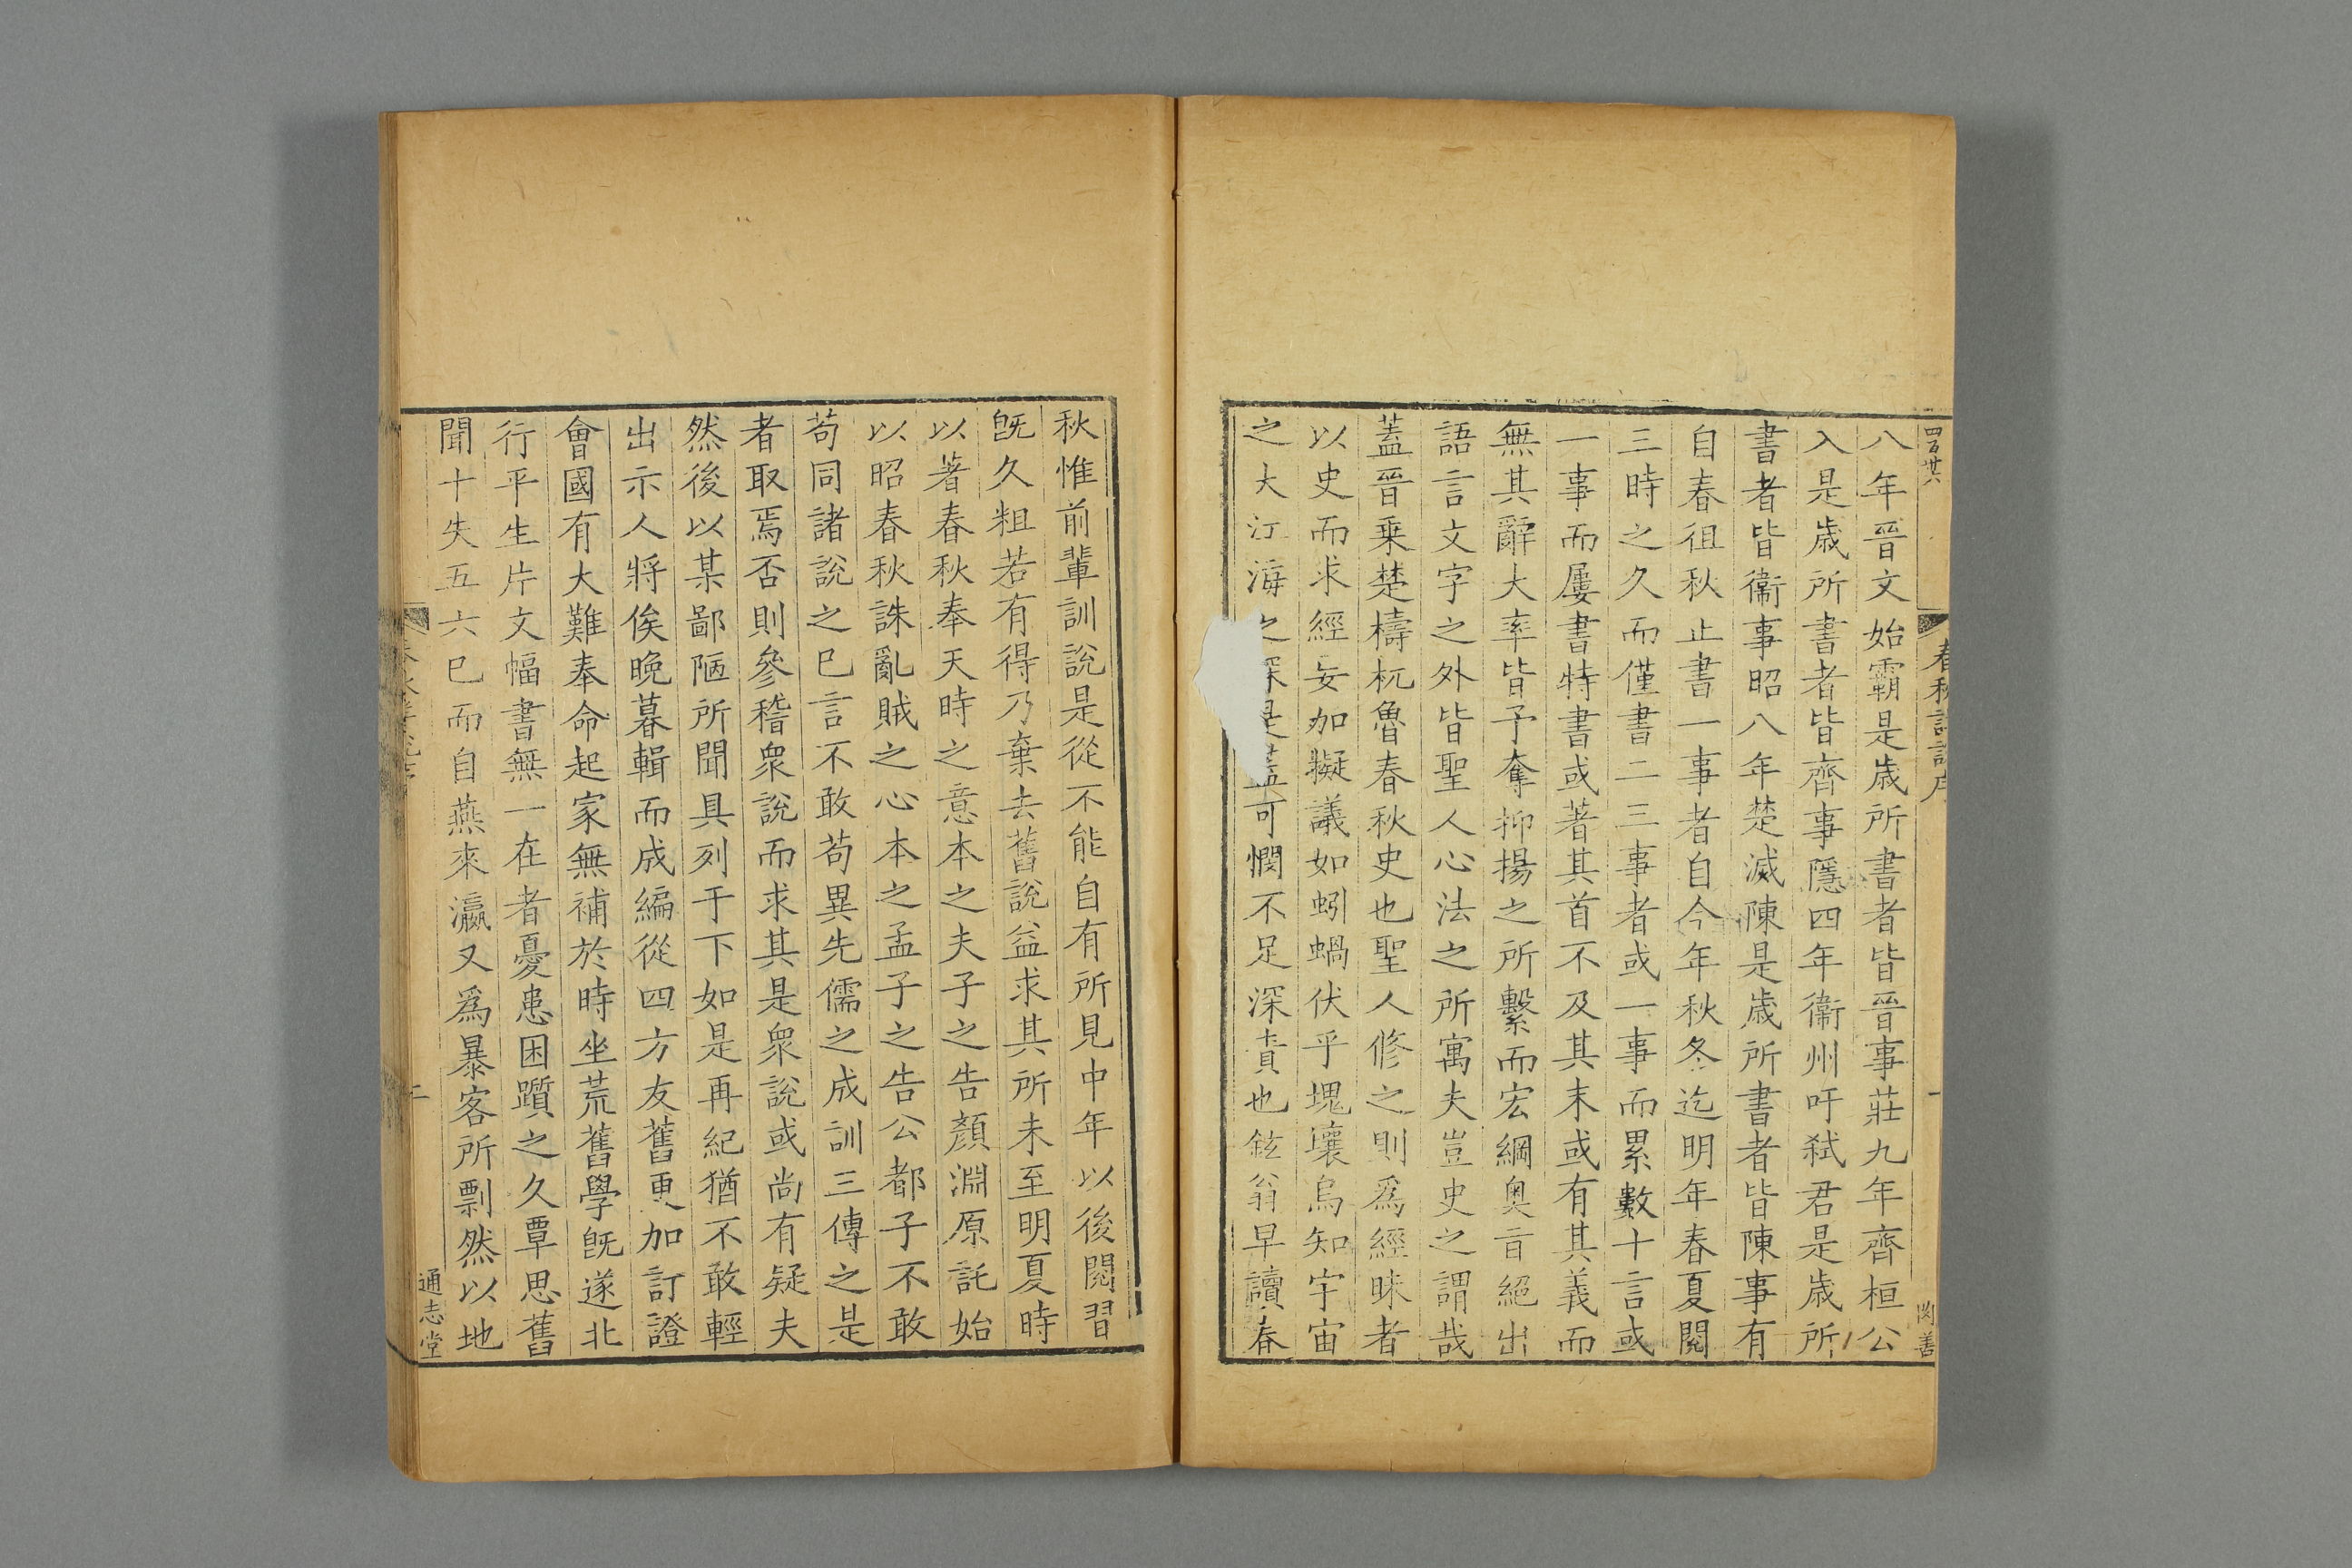 四百廿六
春秋詳說序
一
閔善
八年晉文始霸是歲所書者皆晉事莊九年齊桓公
入是歲所書者皆齊事隱四年衞州吁弑君是歲所
書者皆衞事昭八年楚滅陳是歲所書者皆陳事有
自春徂秋止書一事者自今年秋冬迄明年春夏閱
三時之久而僅書二三事者或一事而累數十言或
一事而屢書特書或著其首不及其末或有其義而
無其辭大率皆予奪抑揚之所繫而宏綱奥旨絕出
語言文字之外皆聖人心法之所寓夫豈史之謂哉
蓋晉乗楚檮杌魯春秋史也聖人修之則爲經昧者
以史而求經妄加擬議如蚓蝸伏乎塊壤烏知宇宙
之大江海之深是蓋可憫不足深責也鉉翁早讀春
秋惟前輩訓說是從不能自有所見中年以後閱習
旣久粗若有得乃棄去舊說益求其所未至明夏時
以著春秋奉天時之意本之夫子之告顏淵原託始
以昭春秋誅亂賊之心本之孟子之告公都子不敢
苟同諸說之巳言不敢苟異先儒之成訓三傳之是
者取焉否則參稽衆說而求其是衆說或尚有疑夫
然後以某鄙陋所聞具列于下如是再紀猶不敢輕
出示人將俟晚暮輯而成編從四方友舊更加訂證
會國有大難奉命起家無補於時坐荒舊學旣遂北
行平生片文幅書無一在者憂患困躓之久覃思舊
聞十失五六巳而自燕來瀛又爲暴客所剽然以地
二
通志堂